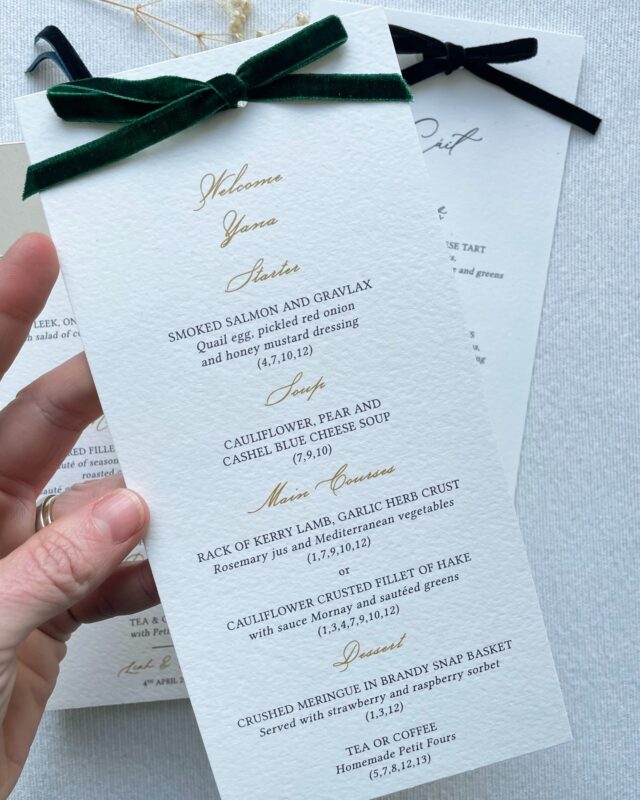 Welcome
Yana
Starter
SMOKED SALMON AND GRAVLAX
Quail egg, pickled red onion
and honey mustard dressing
(4,7,10,12)
Soup
CAULIFLOWER, PEAR AND
CASHEL BLUE CHEESE SOUP
(7,9,10)
Main Courses
RACK OF KERRY LAMB, GARLIC HERB CRUST
Rosemary jus and Mediterranean vegetables
(1,7,9,10,12)
or
CAULIFLOWER CRUSTED FILLET OF HAKE
with sauce Mornay and sautéed greens
(1,3,4,7,9,10,12)
Dessert
CRUSHED MERINGUE IN BRANDY SNAP BASKET
Served with strawberry and raspberry sorbet
(1,3,12)
TEA OR COFFEE
Homemade Petit Fours
(5,7,8,12,13)
TART
and greens
LEEK,
salad of
of season
roasted
TEA &
with
&
4TH APRIL